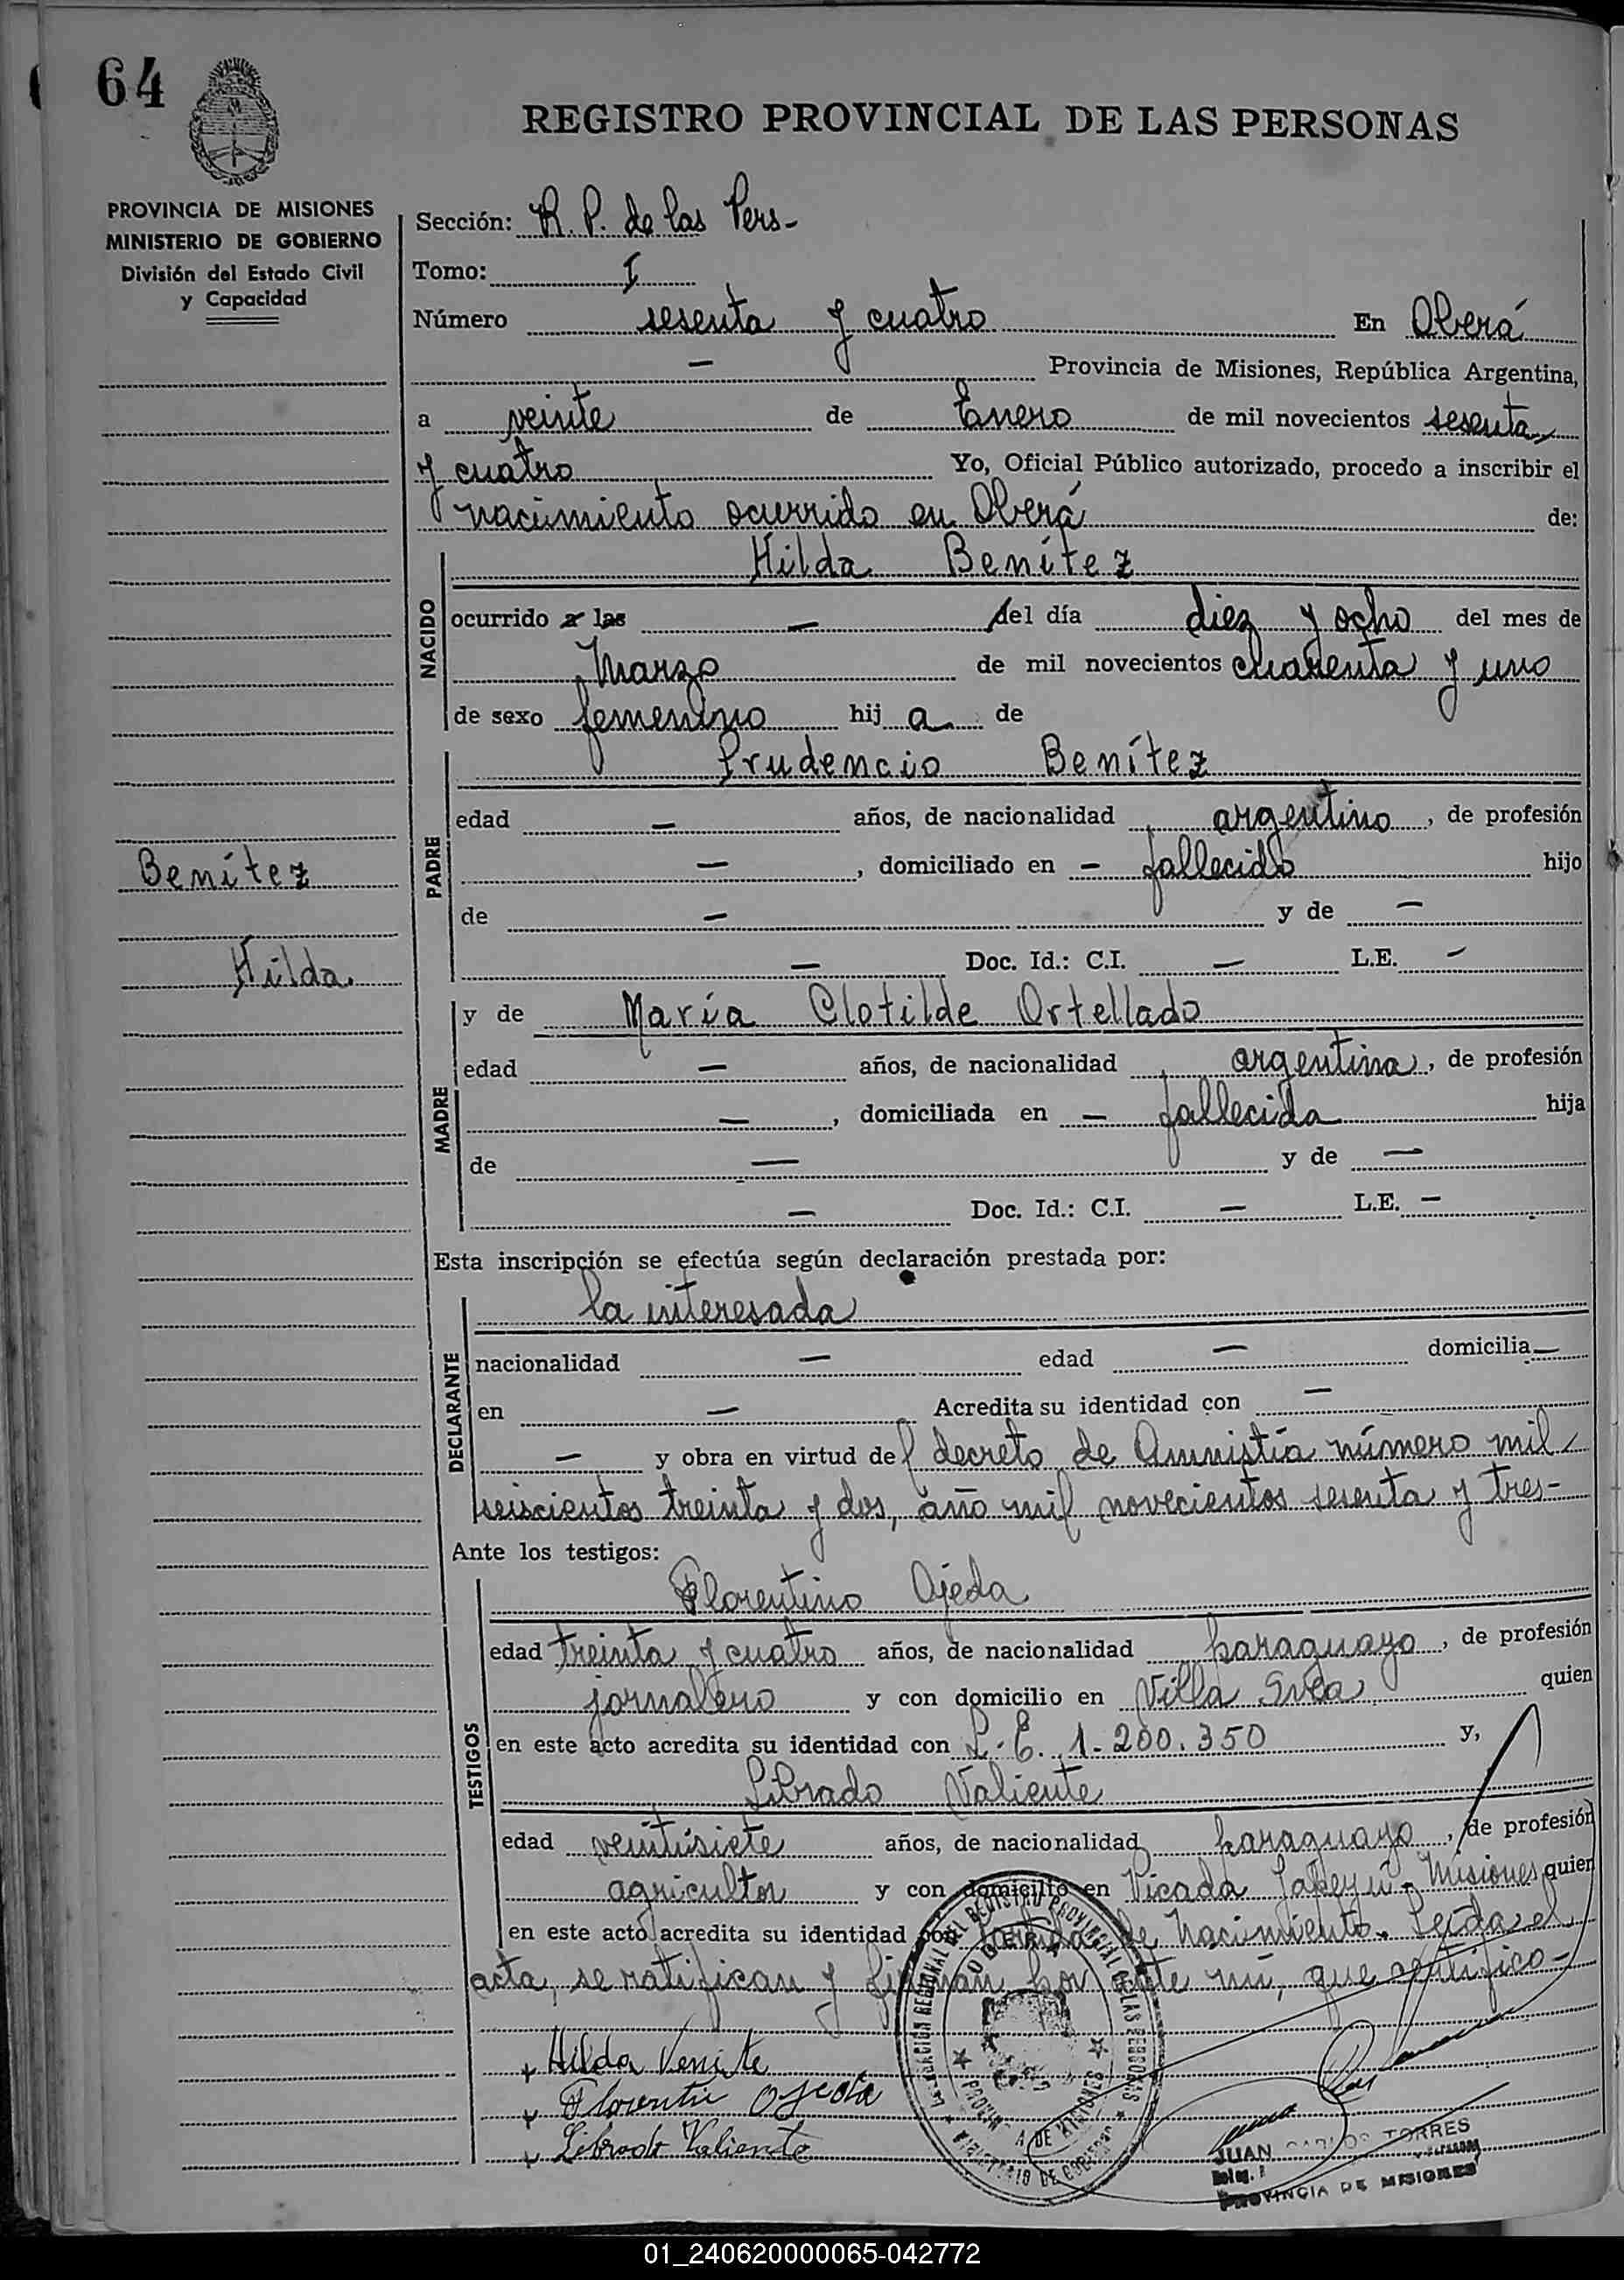 64
REGISTRO PROVINCIAL DE LAS PERSONAS
PROVINCIA DE MISIONES
MINISTERIO DE GOBIERNO
División del Estado Civil
y Capacidad
Sección: R. P. de las Pers-
Tomo: I
Número sesenta y cuatro En Oberá
— Provincia de Misiones, República Argentina,
a veinte de Enero de mil novecientos sesenta
y cuatro Yo, Oficial Público autorizado, procedo a inscribir el
nacimiento ocurrido en Oberá de:
Hilda Benítez
NACIDO
ocurrido a las — del día diez y ocho del mes de
Marzo de mil novecientos cuarenta y uno
de sexo femenino hij a de
Prudencio Benítez
PADRE
edad — años, de nacionalidad argentino, de profesión
—, domiciliado en — fallecido hijo
de — y de —
— Doc. Id.: C.I. — L.E. —
Benítez
Hilda.
y de María Clotilde Ortellado
MADRE
edad — años, de nacionalidad argentina, de profesión
—, domiciliada en — fallecida hija
de — y de —
— Doc. Id.: C.I. — L.E. —
Esta inscripción se efectúa según declaración prestada por:
la interesada
DECLARANTE
nacionalidad — edad — domicilia —
en — Acredita su identidad con —
— y obra en virtud del decreto de Amnistía número mil
seiscientos treinta y dos, año mil novecientos sesenta y tres-
Ante los testigos:
Florentino Ojeda
TESTIGOS
edad treinta y cuatro años, de nacionalidad paraguayo, de profesión
jornalero y con domicilio en Villa Svea quien
en este acto acredita su identidad con L. E. 1.200.350 y,
Librado Valiente
edad veintisiete años, de nacionalidad paraguayo, de profesión
agricultor y con domicilio en Picada Yapeyú - Misiones quien
en este acto acredita su identidad con Partida de Nacimiento. Leída el
acta, se ratifican y firman por ante mí, que certifico-
+ Hilda Venite
+ Florentin Ojeda
+ Librado Valiente
DELEGACIÓN REGIONAL DEL REGISTRO PROVINCIAL DE LAS PERSONAS
OBERA
PROVINCIA DE MISIONES
MINISTERIO DE GOBIERNO
JUAN CARLOS TORRES
PROVINCIA DE MISIONES
01_240620000065-042772